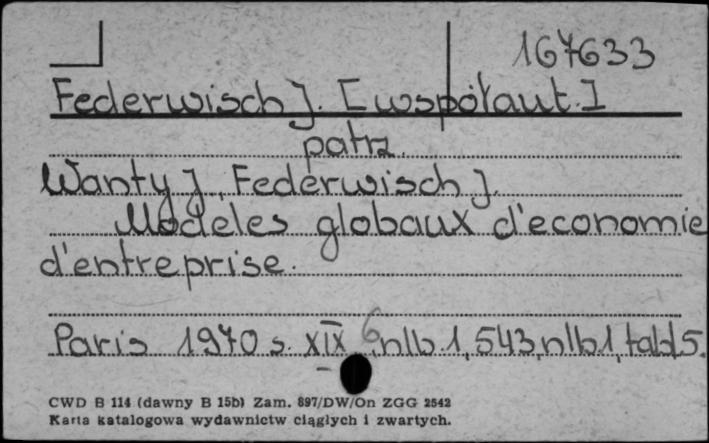 167633
Federwisch J. [współaut.]
patrz
Wanty J., Federwisch J.
Modeles globaux d'economie
d'entreprise.
Paris 1970 s. XIX, nlb 1, 543, nlb 1, tabl 5.
CWD B 114 (dawny B 15b) Zam. 897/DW/On ZGG 2542
Karta katalogowa wydawnictw ciągłych i zwartych.